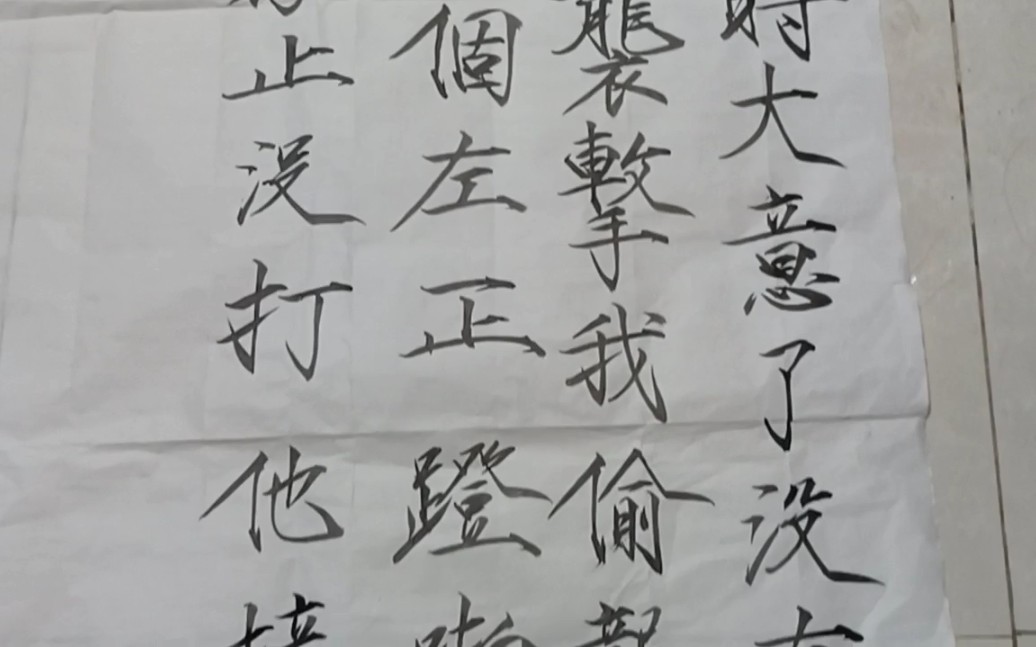 大意了没
襲擊我偷
個左正蹬
止没打他